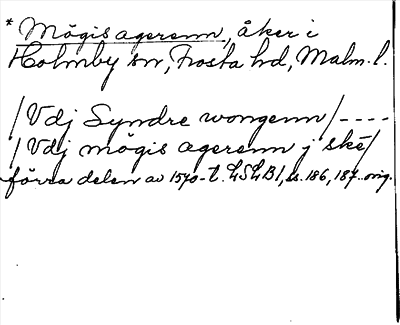 * Mögis agerenn, åker i
Holmby sn, Frosta hd, Malm. l.
/Vdj Syndre wongenn/----
/Vdj mögis agerenn j skë/
förra delen av 1570-t. LSLB1, ss. 186, 187. orig.